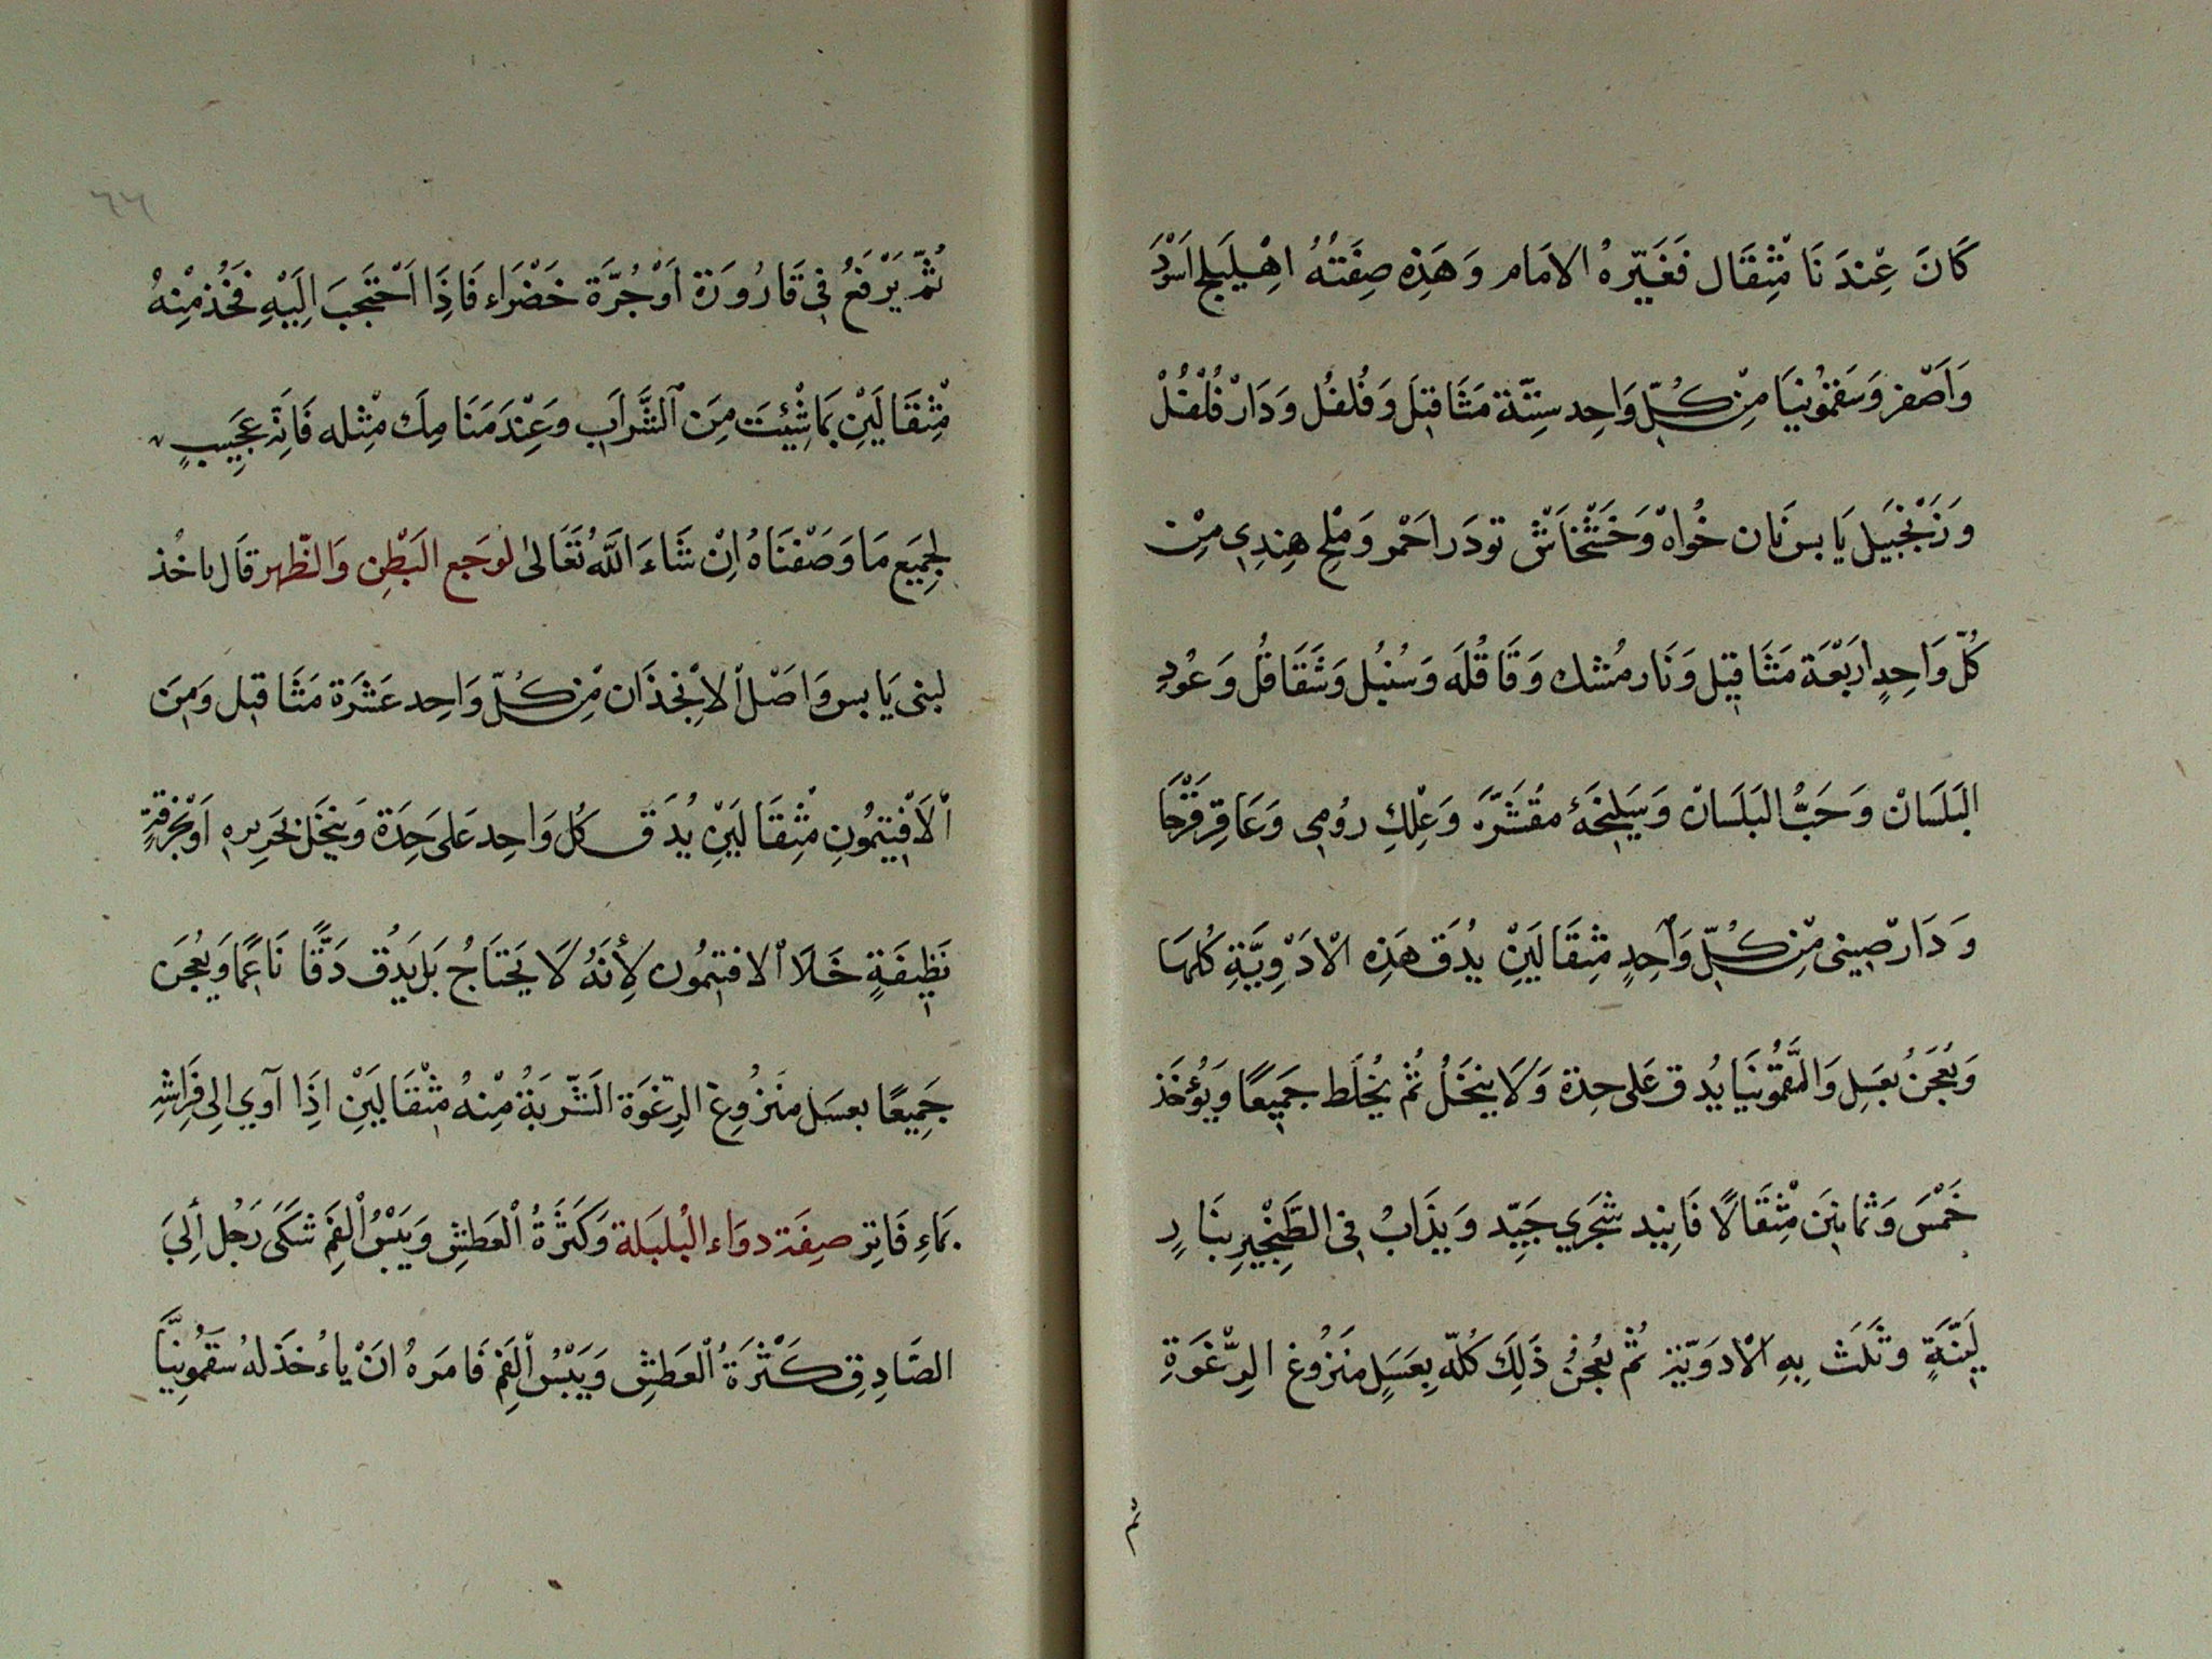 كَانَ عِنْدَنَا مِثْقَال فَغَيَّرهُ الامَام وَهَذِه صِفَتُهُ اهْلِيلَج اَسْوَدَ
وَاَصْفر وَسَقمُونيَا مِنْ كُلّ وَاحِد سِتّة مَثَاقِيل وَفُلفُل وَدَارْ فُلْفُلْ
وَزَنْجَبيَل يَابس نَان خُواهْ وَخَشْخَاشْ تودَر احْمر وَمْلح هِندِي مِنْ
كُلّ وَاحِدٍ اربَعَة مَثَاقِيل وَنَار مُشك وَقَاقُلَه وَسُنبُل وَشَقَاقُل وَعُودِ
البَلَسَانْ وَحَبُّ البَلَسَانْ وَسَيلِخَهُ مقُشَّرَه وَعْلِكِ رُومِى وَعَاقِر قَرْحَا
وَدَارْصِينى مِنْ كُلّ وَاحِدٍ مِثقَالَيْنِ يُدَق هَذِه الْادَوِيَّةِ كُلهَا
وَيُعْجَنُ بعَسَلِ وَالسَّقمُّونيَا يُدق عَلى حِدة وَلَا ينخَلُ ثُم يُخلَط جمَيعًا وَيُؤخَذ
خَمْسَ وَثمانِينَ مِثْقَالًا فَانِيد شجَري جَيِّد وَيذَابُ فِى الطَّنجْيرِ بنَارٍ
لَيِّنَةٍ وتَلَث بِهِ الْادوَيّتر ثُم يُعْجنُ ذَلِكَ كُلّه بِعَسَلٍ مَنْزُوع الرِّغْوَةِ
ثم
٦٦
ثُمّ يَرْفَعُ فِى قَارُورَة اَوْجُرَّة خَضْرَاء فَاذِا اَحْتَجبَ اِلَيْهِ فَخُذ مِنهُ
مِثْقَالَيْنِ بمَاشِئيتَ مِنَ الشَّرَابِ وَعِنْدَ مَنَامِكَ مْثِله فَانَّه عَجِيبٍ
لِجمِيَع مَا وَصَفْنَاهُ اِنْ شَاءَ اللَّهُ تَعَالى لوَجَع البَطْنِ وَالظّهر قَال ياخُذ
لبنى يَابس وَاصَلْ الانْجذَان مْن كُلّ وَاحِد عَشرَة مَثَاقيل وَمِنَ
الْاَفْيتمُونِ مْثِقَالَيْنِ يُدَق كُل وَاحِد عَلى حَدِة وَيُنخَل بحَرِيره اَوْ بخرْقةٍ
نَظِيفَةٍ خَلَا الْافتيمُون لِأَنَهُ لَا يَحتَاجُ بَل يَدُق دَقًّا نَاعِمًا وَيعُجنَ
جَمِيعًا بعسَل مَنزُوع الرِّغْوَة الَشّربَةُ مِنْهُ مِثْقَالَيَنْ اذِا آوي الِى فَرَاشِه
بمَاءِ فَاتِر صِفَة دوَاء البُلبَلَة وَكَثَرةُ الْعَطشِ وَيَبسُ الْفِم شَكَى رَجُل الَىِ
الصَادِق كَثْرَةُ الْعَطشِ وَيَبْسُ الْفِم فَامَرهُ انَ ياءخُذ لهُ سَقمُونيَّا